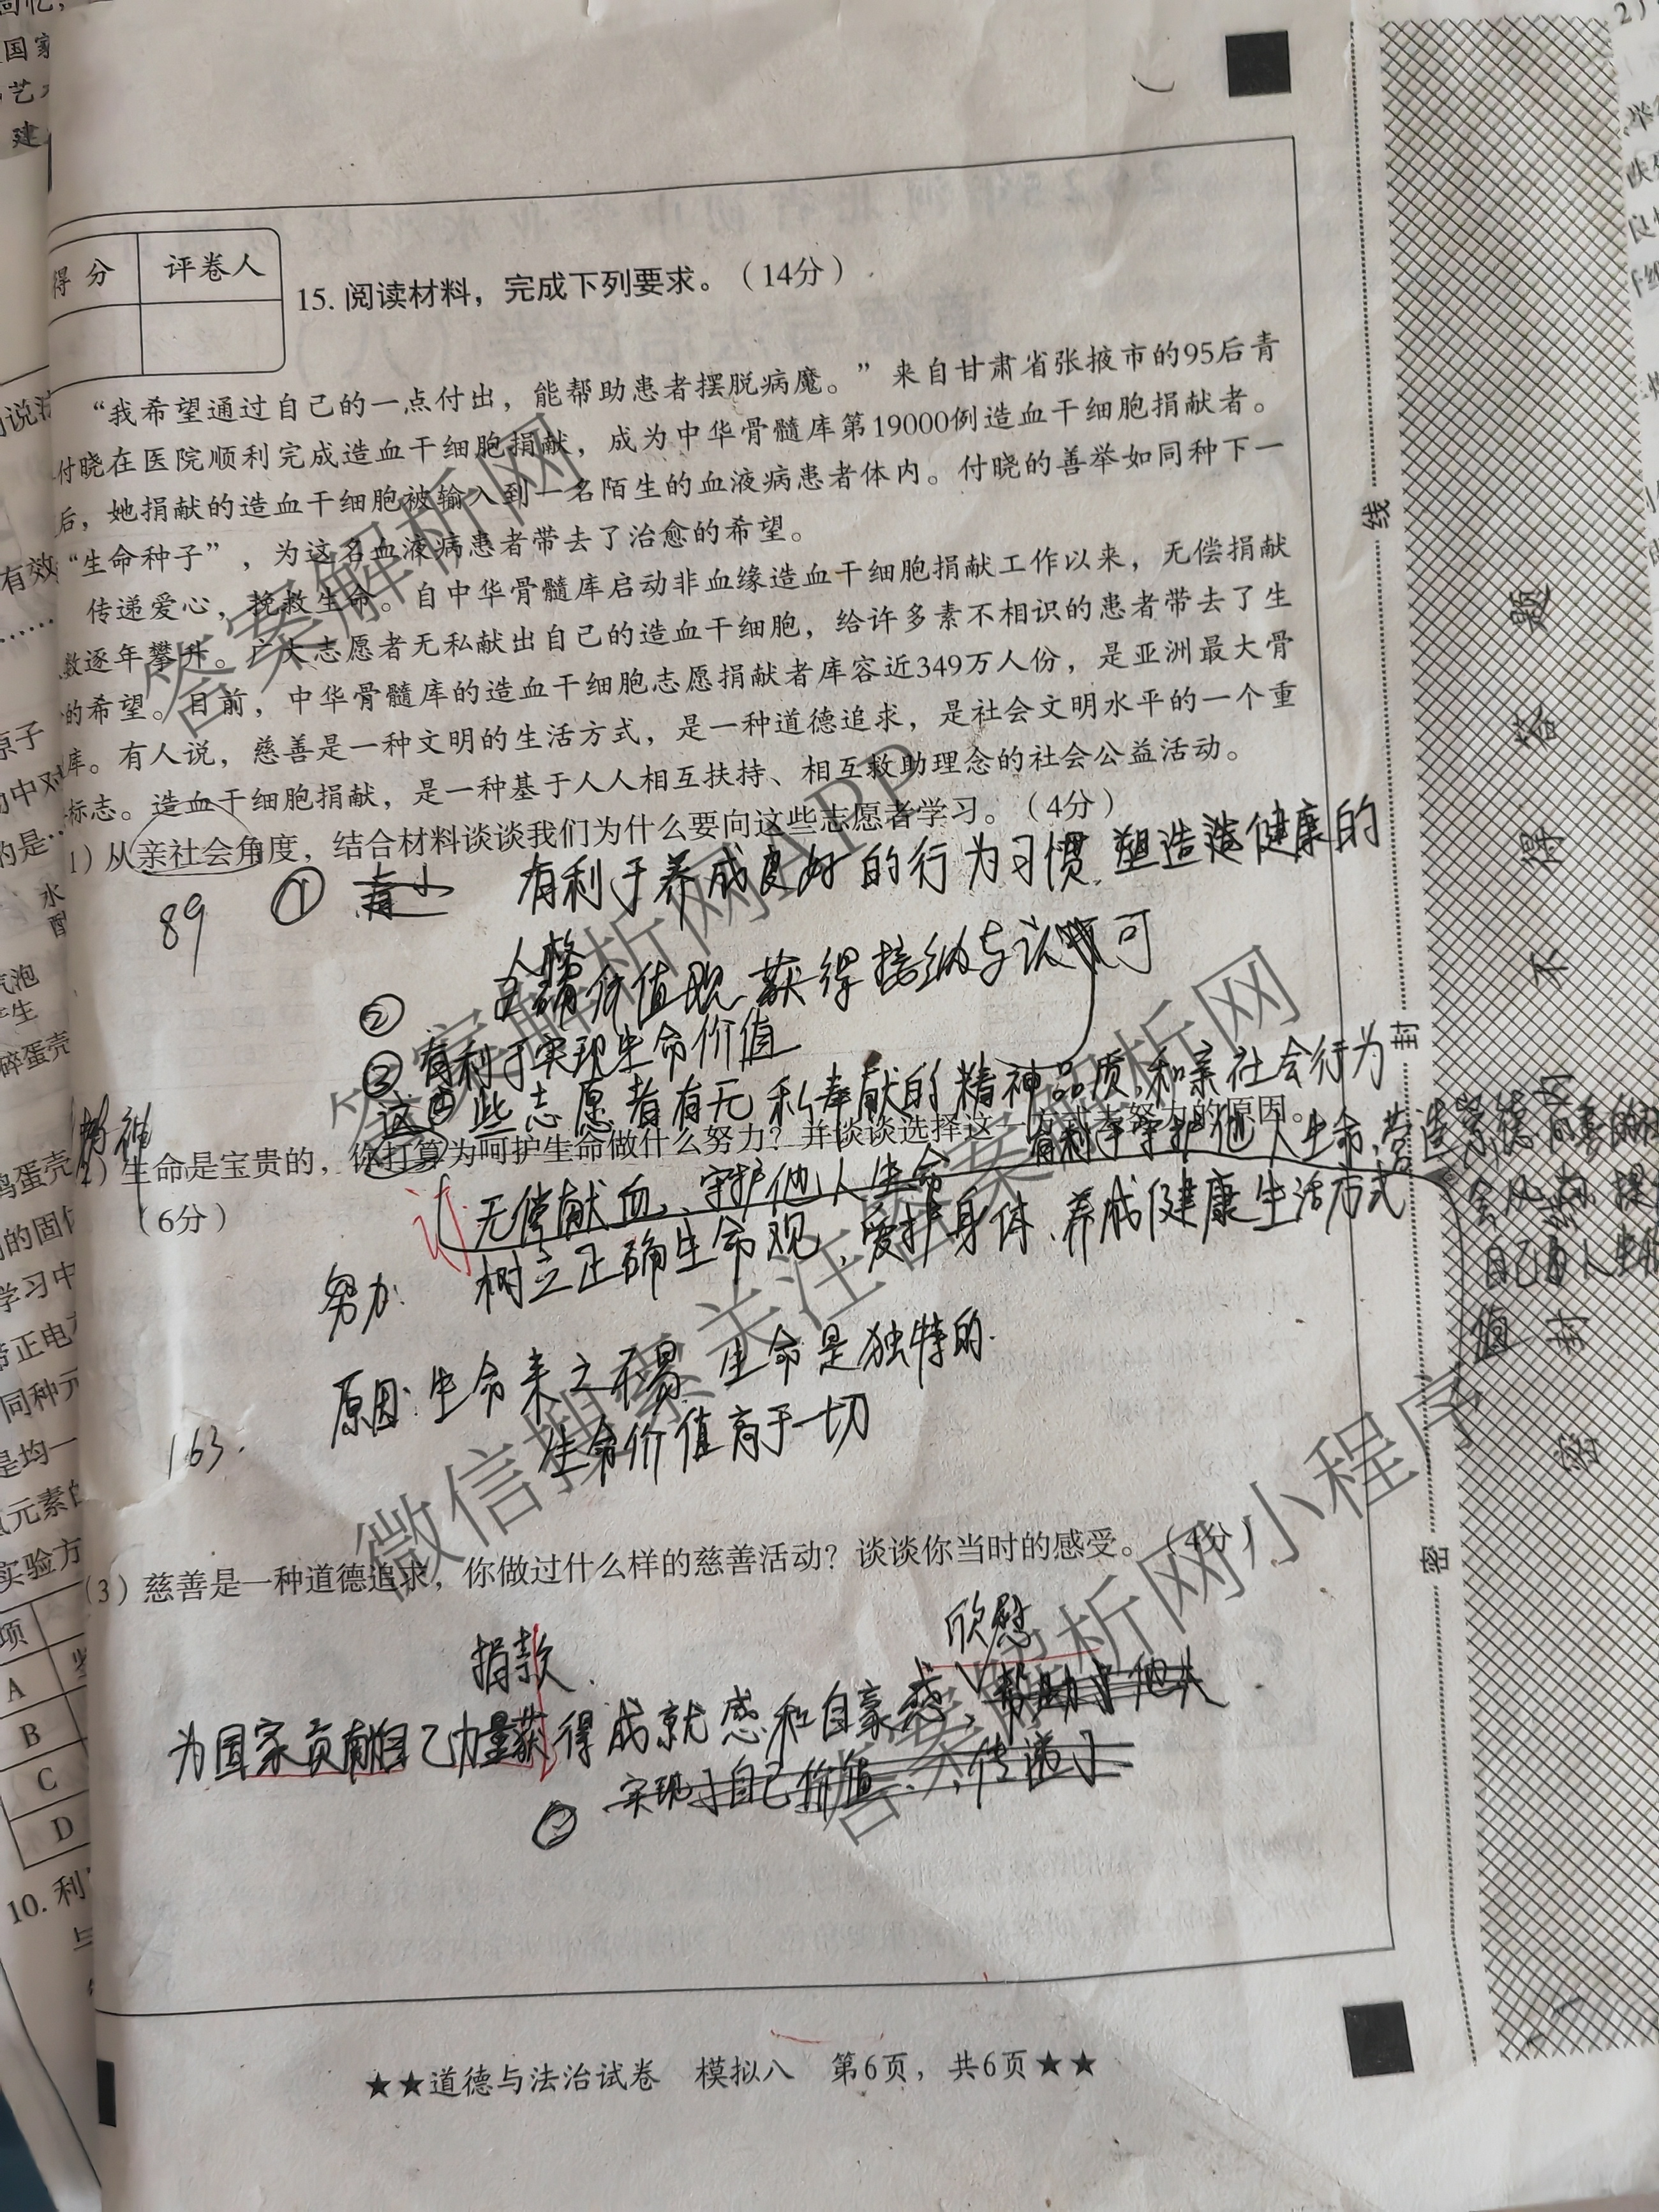 得分
评卷人
15. 阅读材料，完成下列要求。（14分）
“我希望通过自己的一点付出，能帮助患者摆脱病魔。”来自甘肃省张掖市的95后青
付晓在医院顺利完成造血干细胞捐献，成为中华骨髓库第19000例造血干细胞捐献者。
后，她捐献的造血干细胞被输入到一名陌生的血液病患者体内。付晓的善举如同种下一
“生命种子”，为这名血液病患者带去了治愈的希望。
传递爱心，挽救生命。自中华骨髓库启动非血缘造血干细胞捐献工作以来，无偿捐献
数逐年攀升。广大志愿者无私献出自己的造血干细胞，给许多素不相识的患者带去了生
的希望。目前，中华骨髓库的造血干细胞志愿捐献者库容近349万人份，是亚洲最大骨
库。有人说，慈善是一种文明的生活方式，是一种道德追求，是社会文明水平的一个重
标志。造血干细胞捐献，是一种基于人人相互扶持、相互救助理念的社会公益活动。
1）从亲社会角度，结合材料谈谈我们为什么要向这些志愿者学习。（4分）
89
① 有利于养成良好的行为习惯，塑造健康的
人格
② 正确价值观 获得接纳与认可
③ 有利于实现生命价值
这些志愿者有无私奉献的精神品质，和亲社会行为
2）生命是宝贵的，你打算为呵护生命做什么努力？并谈谈选择这一方式去努力的原因。
（6分）
有利于守护他人生命，营造
无偿献血、守护他人生命
努力：树立正确生命观，爱护身体、养成健康生活方式
自己的人生价
值
原因：生命来之不易 生命是独特的.
生命价值高于一切
163.
（3）慈善是一种道德追求，你做过什么样的慈善活动？谈谈你当时的感受。（4分）
捐款.
欣慰
为国家贡献自己力量获得成就感和自豪感、帮助了他人
② 实现了自己价值、传递了
★★道德与法治试卷 模拟八 第6页，共6页★★
线
封
密
题
答
得
不
封
密
答案解析网
答案解析网APP
微信搜索关注答案解析网
答案解析网小程序
10. 利
A
B
C
D